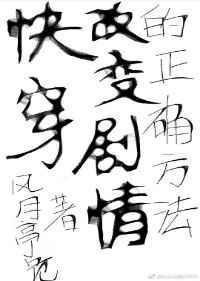 快穿
改变剧情
的正确方法
风月亭晚著